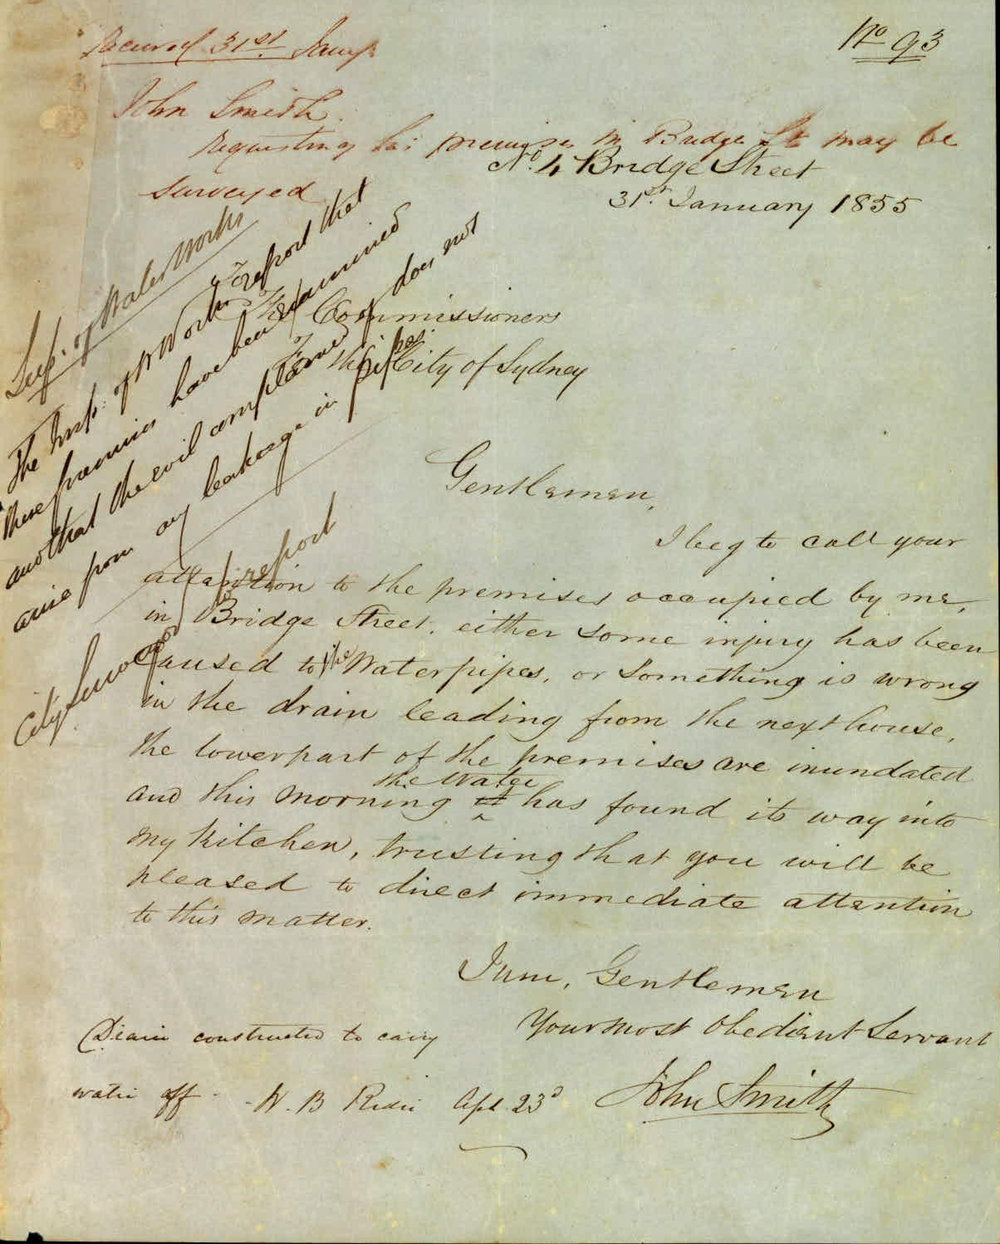 Received 31st Jany
No 93
John Smith.
requesting his premises in Bridge St may be
surveyed
No 4 Bridge Street
31st January 1855
The Commissioners
of the City of Sydney
Gentlemen,
I beg to call your
attention to the premises occupied by me,
in Bridge Street, either some injury has been
caused to the Waterpipes, or something is wrong
in the drain leading from the next house,
the lower part of the premises are inundated
and this morning it the Water has found its way into
my kitchen, trusting that you will be
pleased to direct immediate attention
to this matter.
I am, Gentlemen
Your most Obedient Servant
John Smith
Insp. of Water Works
to report
The Insp. of W Works report that
these premises have been examined
and that the evil complained of does not
arise from any leakage in pipes.
City Surveyor to report
Drain constructed to carry
water off - W. B Apl 23d